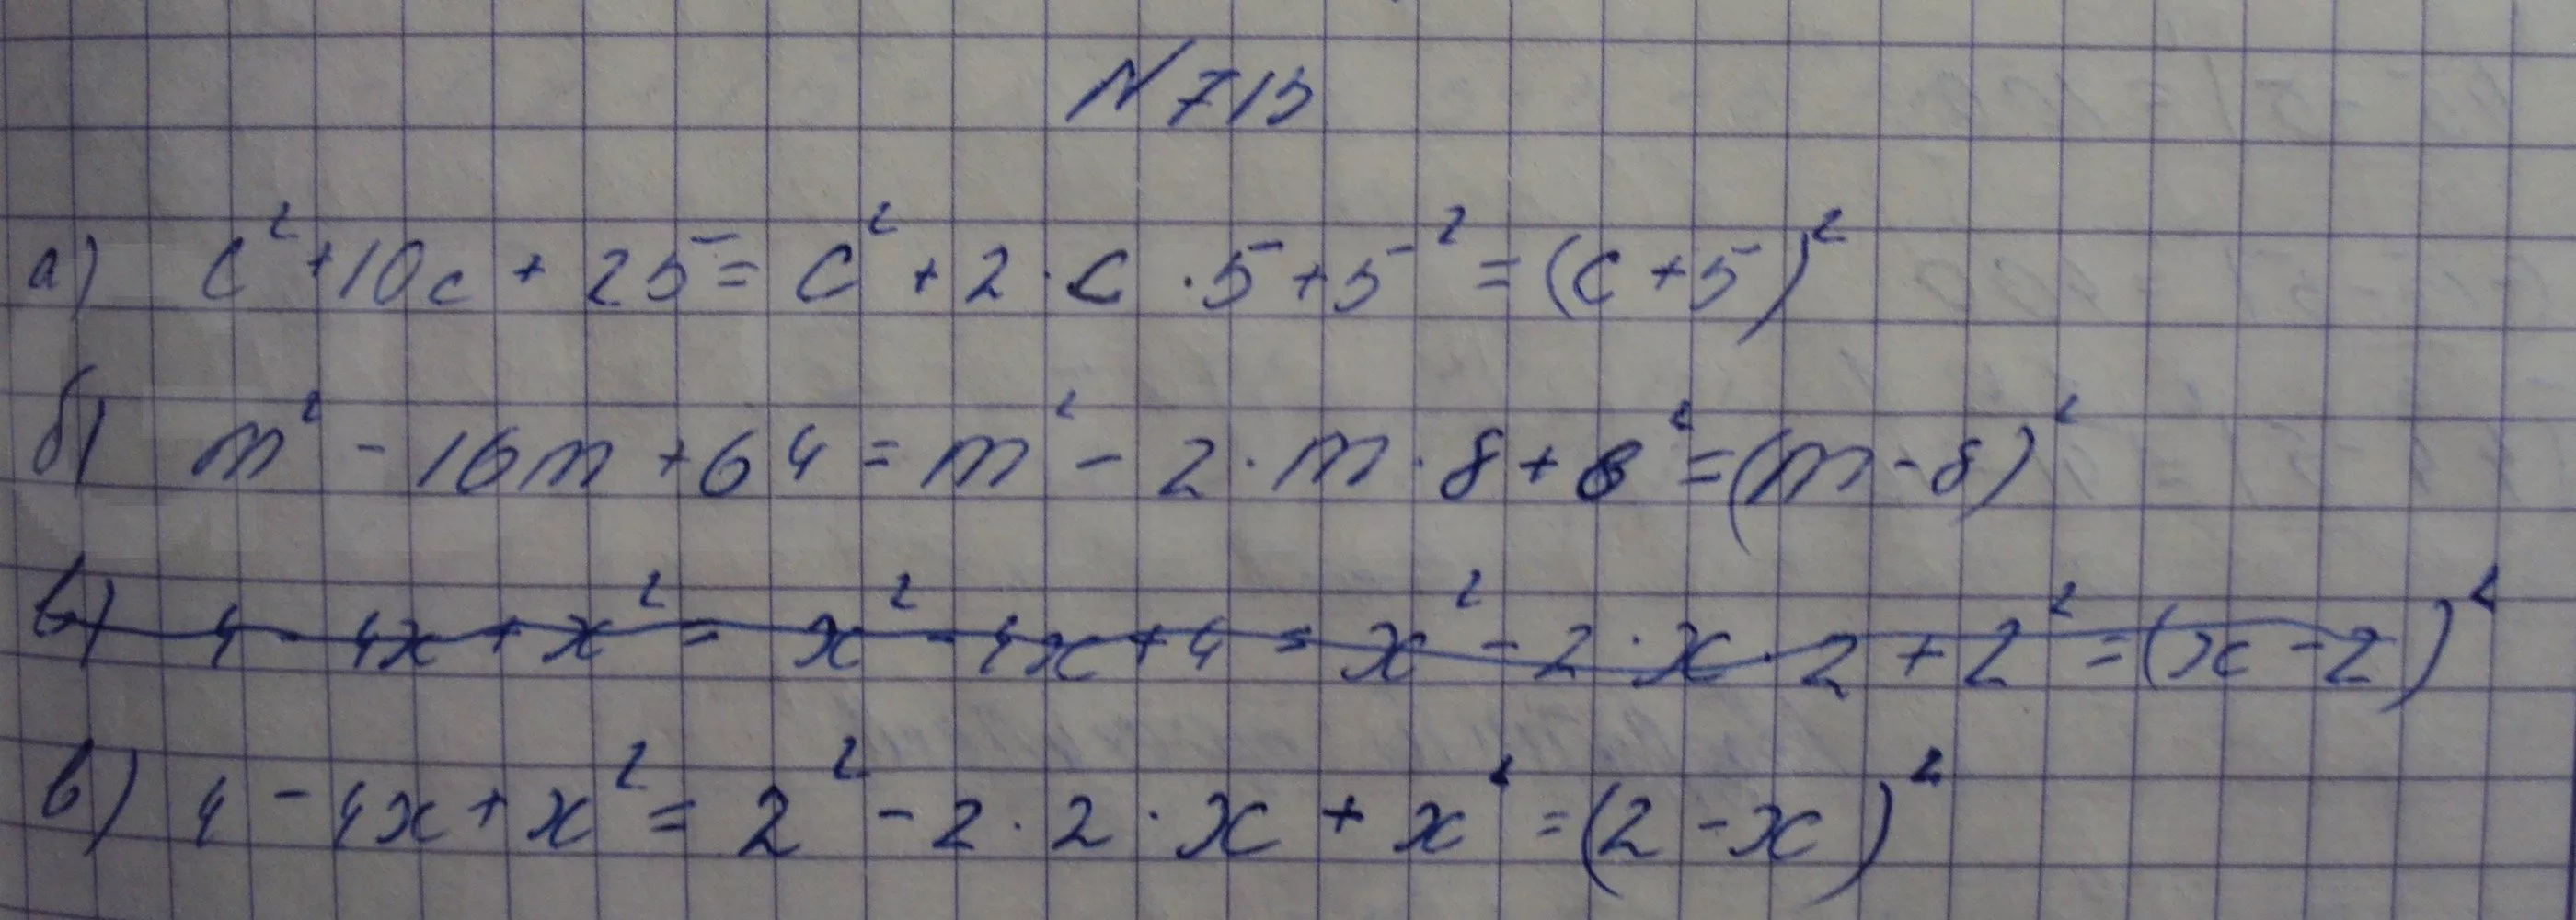 N 715
а) c² + 10c + 25 = c² + 2 · c · 5 + 5² = (c + 5)²
б) m² - 16m + 64 = m² - 2 · m · 8 + 8² = (m - 8)²
в) 4 - 4x + x² = x² - 4x + 4 = x² - 2 · x · 2 + 2² = (x - 2)²
в) 4 - 4x + x² = 2² - 2 · 2 · x + x² = (2 - x)²